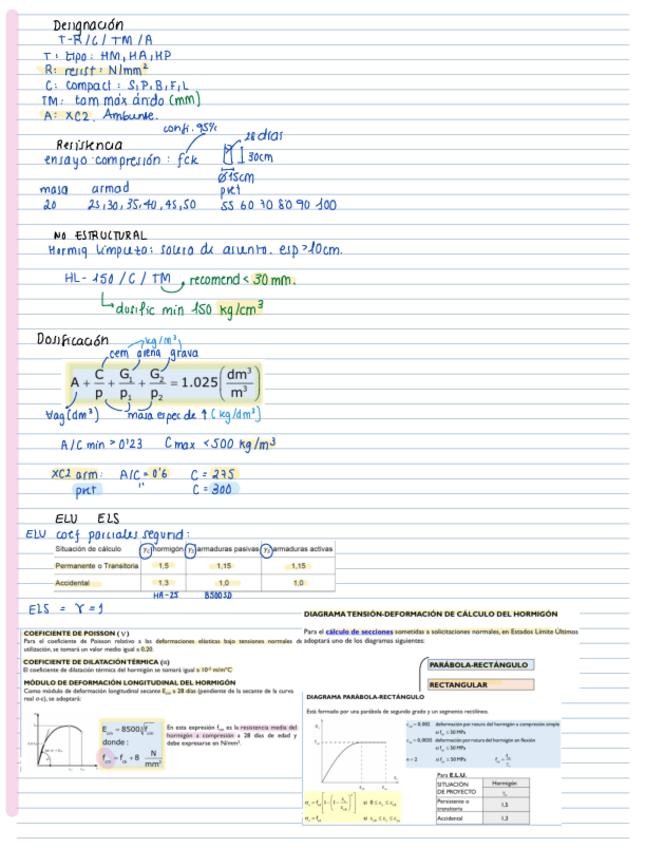 Designación
T-R/C/TM/A
T: tipo: HM, HA, HP
R: resist: N/mm²
C: compact: S, P, B, F, L
TM: tam máx árido (mm)
A: XC2. Ambiente.
conf. 95%
28 días
Resistencia
ensayo compresión: fck
30cm
Ø15cm
masa armad pret
20 25, 30, 35, 40, 45, 50 55 60 70 80 90 100
NO ESTRUCTURAL
Hormig limpieza: solera de asiento. esp > 10cm.
HL-150/C/TM recomend < 30 mm.
dosific min 150 kg/cm³
Dosificación
kg/m³
cem arena grava
A + C/p + G₁/p₁ + G₂/p₂ = 1.025 (dm³/m³)
Vag (dm³) masa espec de ↑ (kg/dm³)
A/C min > 0'23 Cmax < 500 kg/m³
XC2 arm: A/C = 0'6 C = 275
pret " C = 300
ELU ELS
ELU coef parciales segurid:
Situación de cálculo γc hormigón γs armaduras pasivas γs armaduras activas
Permanente o Transitoria 1,5 1,15 1,15
Accidental 1,3 1,0 1,0
HA-25 B500SD
ELS = γ = 1
COEFICIENTE DE POISSON (ν)
Para el coeficiente de Poisson relativo a las deformaciones elásticas bajo tensiones normales de
utilización, se tomará un valor medio igual a 0.20.
COEFICIENTE DE DILATACIÓN TÉRMICA (α)
El coeficiente de dilatación térmica del hormigón se tomará igual a 10⁻⁵ m/m°C
MÓDULO DE DEFORMACIÓN LONGITUDINAL DEL HORMIGÓN
Como módulo de deformación longitudinal secante Ecm a 28 días (pendiente de la secante de la curva
real σ-ε), se adoptará:
donde:
fcm = fck + 8 N/mm²
En esta expresión fcm es la resistencia media del
hormigón a compresión a 28 días de edad y
debe expresarse en N/mm².
DIAGRAMA TENSIÓN-DEFORMACIÓN DE CÁLCULO DEL HORMIGÓN
Para el cálculo de secciones sometidas a solicitaciones normales, en Estados Límite Últimos
adoptará uno de los diagramas siguientes:
PARÁBOLA-RECTÁNGULO
RECTANGULAR
DIAGRAMA PARÁBOLA-RECTÁNGULO
Está formado por una parábola de segundo grado y un segmento rectilíneo.
deformación por rotura del hormigón a compresión simple
si fck ≤ 50 MPa
deformación por rotura del hormigón en flexión
si fck ≤ 50 MPa
n = 2 si fck ≤ 50 MPa
Para E.L.U.
SITUACIÓN DE PROYECTO Hormigón
Persistente o transitoria 1,5
Accidental 1,3